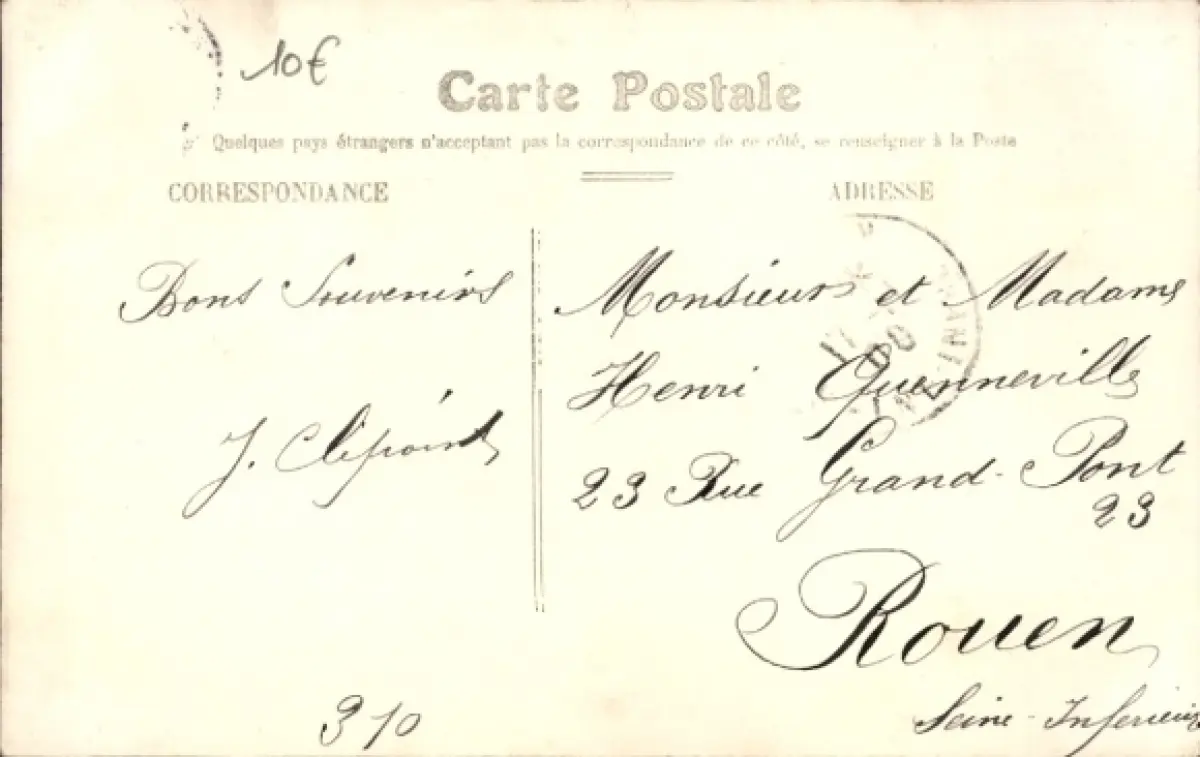 10€
Carte Postale
Quelques pays étrangers n'acceptant pas la correspondance de ce côté, se renseigner à la Poste
CORRESPONDANCE
ADRESSE
Bons Souvenirs
J.
Monsieur et Madame
Henri Quenneville
23 Rue Grand-Pont
23
Rouen
Seine-Inferieure
310